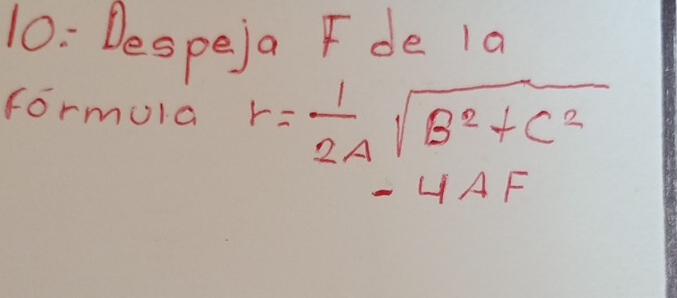 10.- Despeja F de la
fórmula r = 1/2A √B² + C²
- 4AF